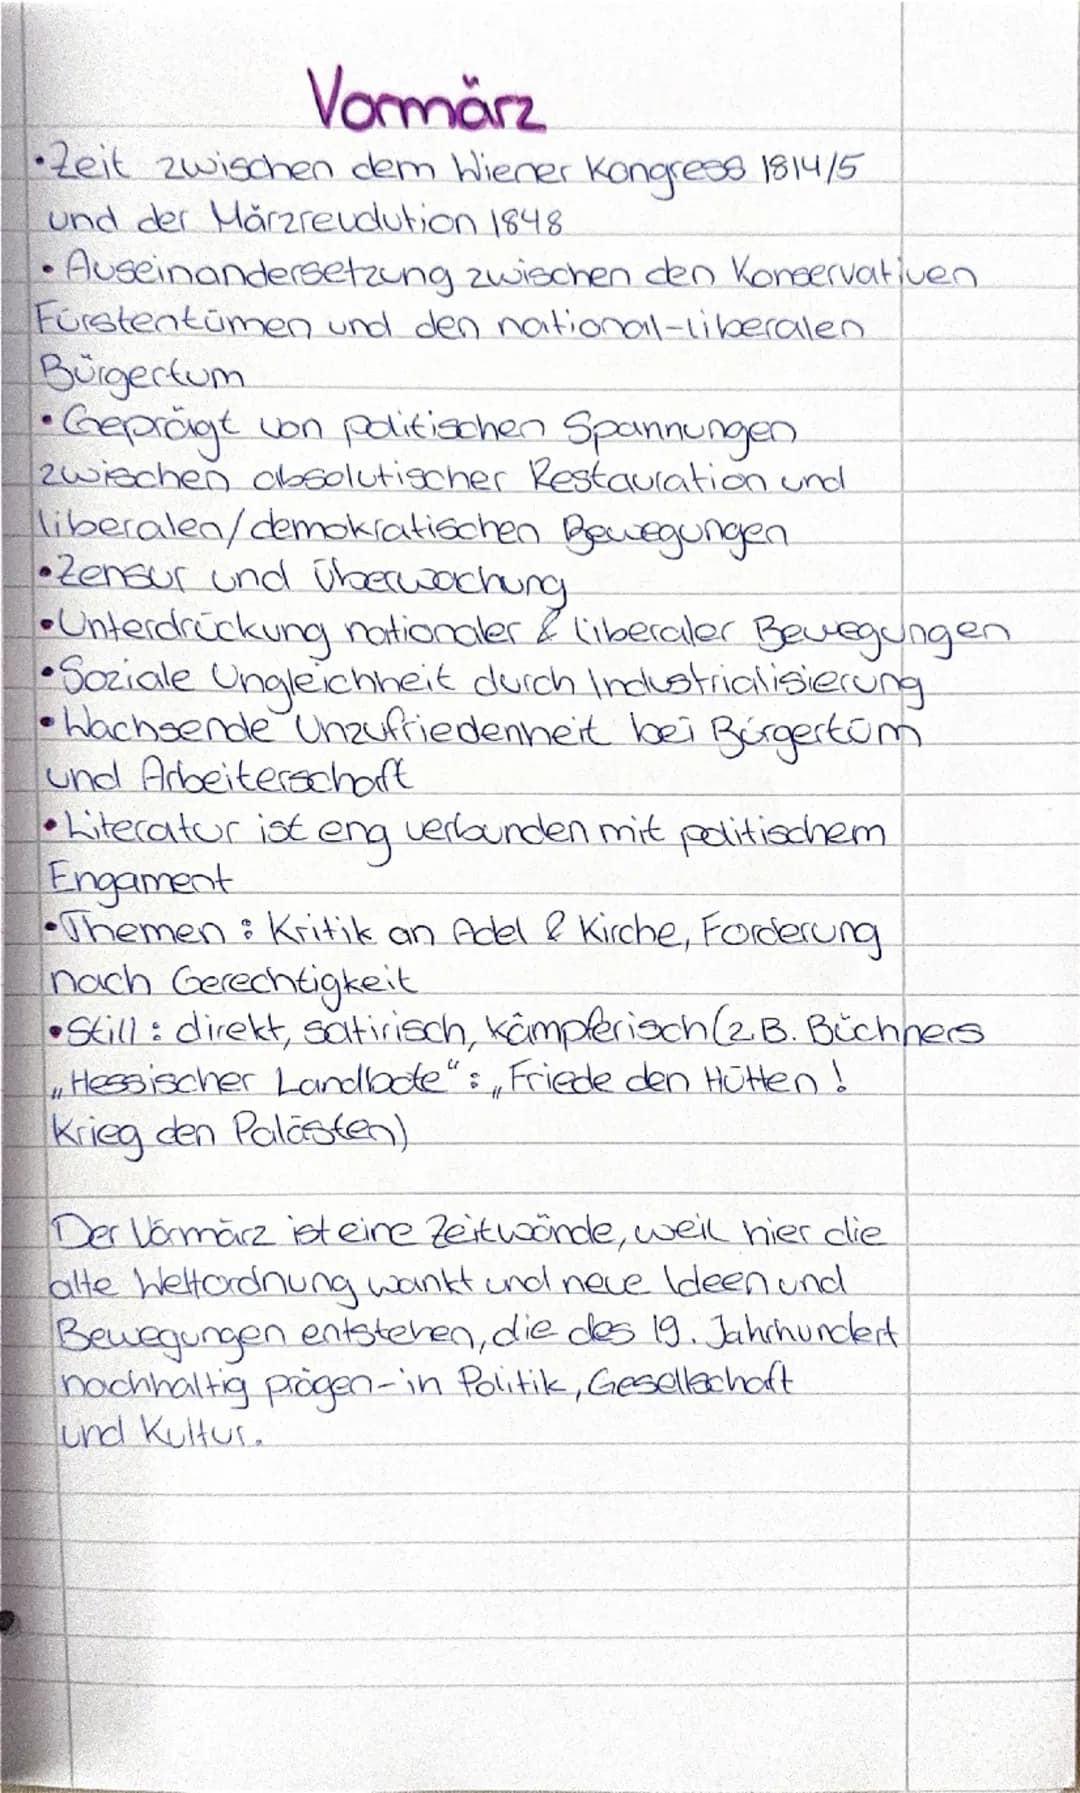 Vormärz
•Zeit zwischen dem Wiener Kongress 1814/5
und der Märzrevolution 1848
• Auseinandersetzung zwischen den Konservativen
Fürstentümen und den national-liberalen
Bürgertum
• Geprägt von politischen Spannungen
zwischen absolutischer Restauration und
liberalen/demokratischen Bewegungen
•Zensur und Überwachung
•Unterdrückung nationaler & liberaler Bewegungen
•Soziale Ungleichheit durch Industrialisierung
•Wachsende Unzufriedenheit bei Bürgertum
und Arbeiterschaft
•Literatur ist eng verbunden mit politischem
Engament
•Themen: Kritik an Adel & Kirche, Forderung
nach Gerechtigkeit
•Still: direkt, satirisch, kämpferisch (z.B. Büchners
„Hessischer Landbote“: „Friede den Hütten!
Krieg den Palästen)
Der Vormärz ist eine Zeitwände, weil hier die
alte Weltordnung wankt und neue Ideen und
Bewegungen entstehen, die des 19. Jahrhundert
nachhaltig prägen-in Politik, Gesellschaft
und Kultur.